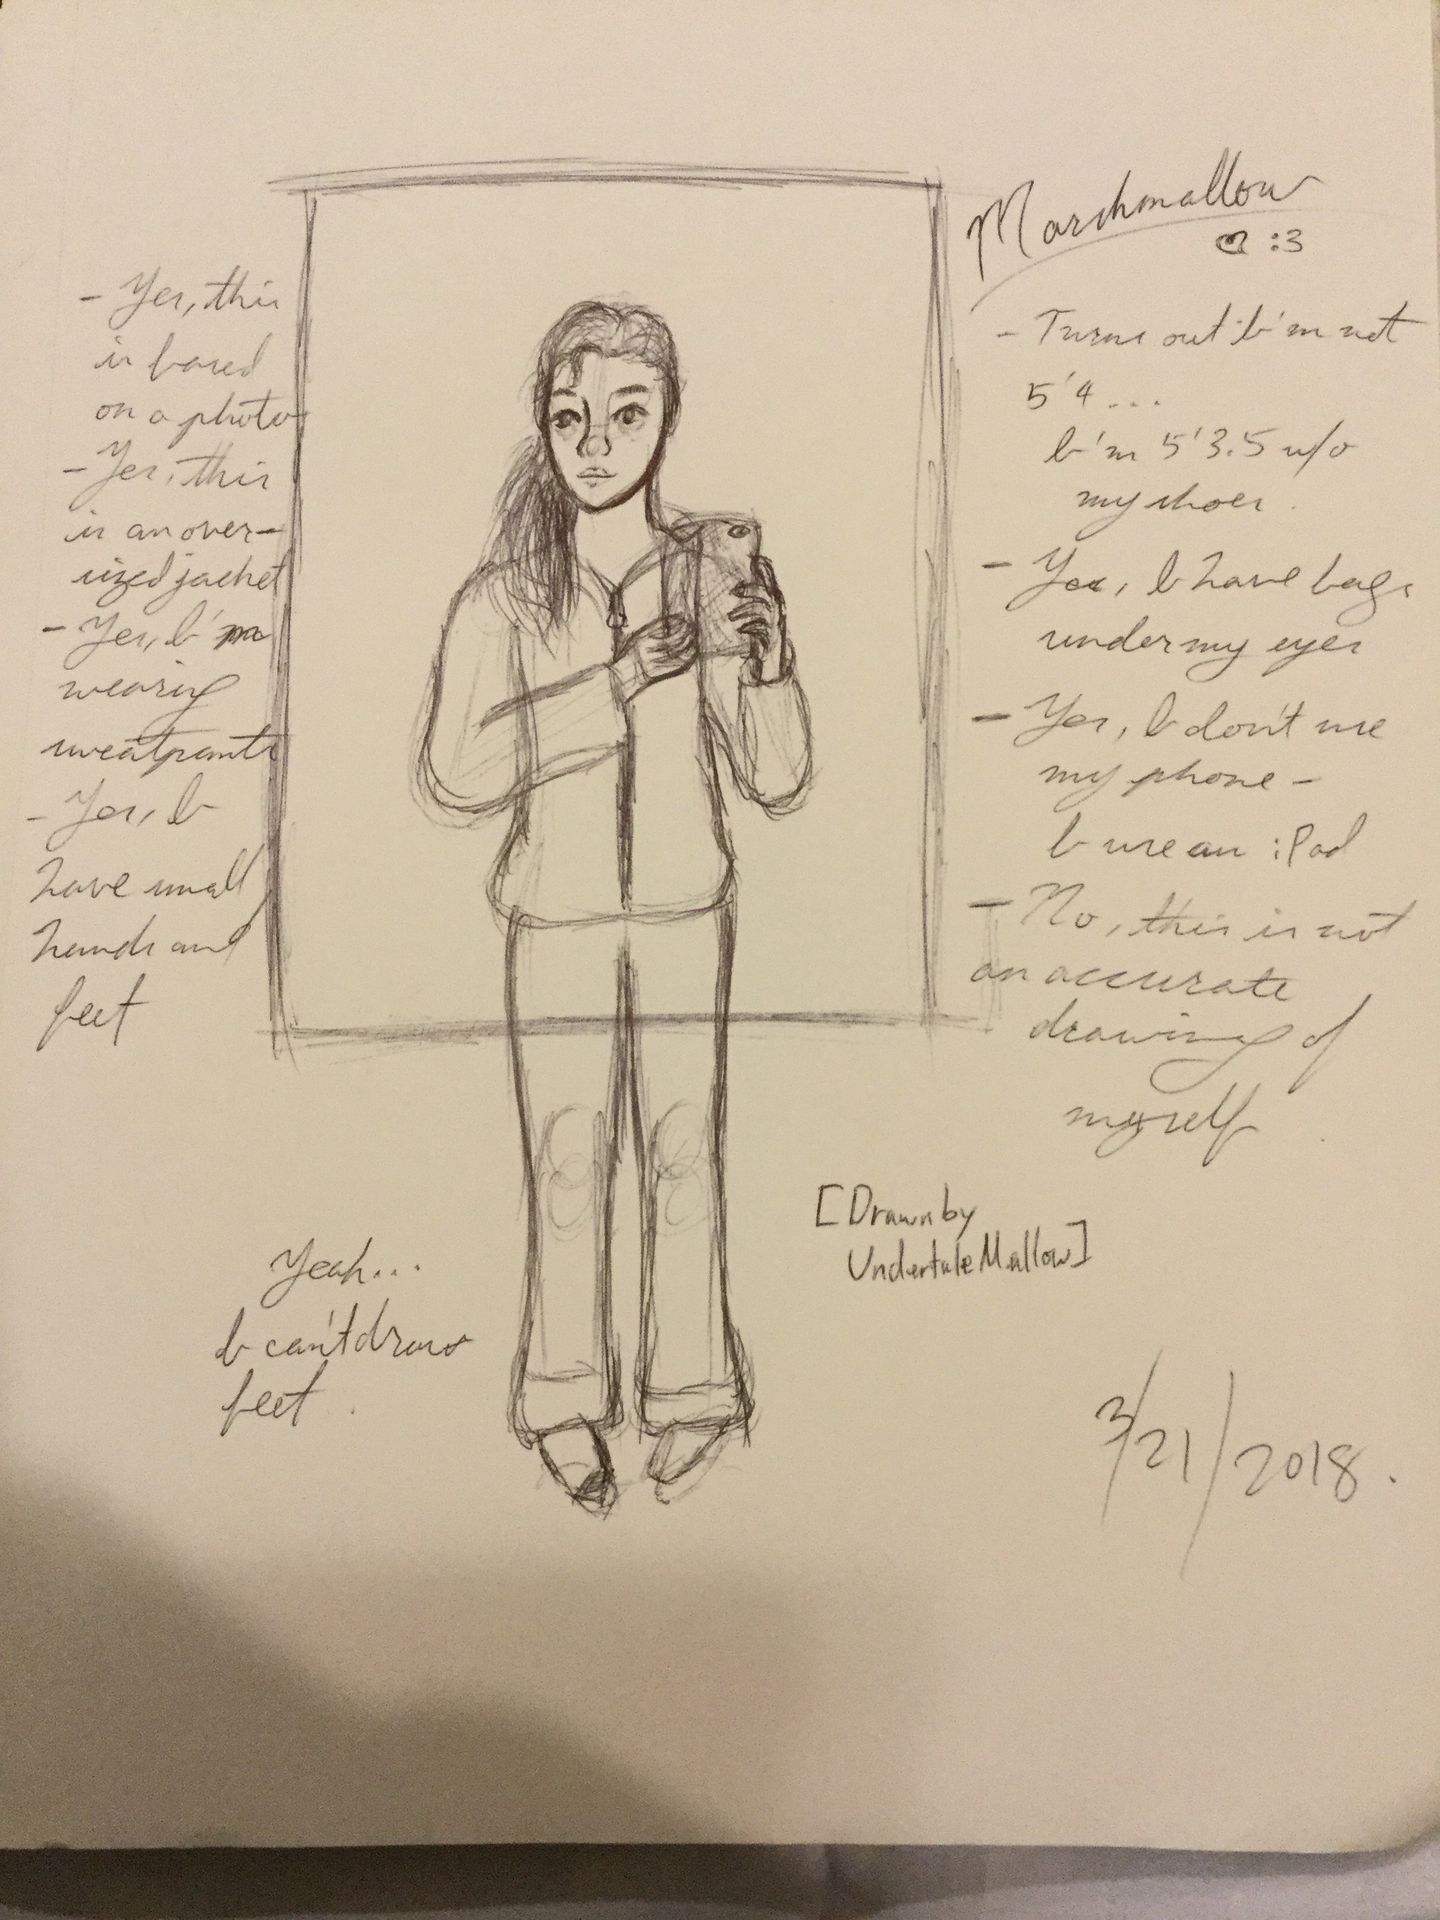 Marshmallow
:3
- Yes, this
is based
on a photo
- Yes, this
is an over-
sized jacket
- Yes, I'm
wearing
sweatpants
- Yes, I
have small
hands and
feet
- Turns out I'm not
5'4...
I'm 5'3.5 w/o
my shoes.
- Yes, I have bags
under my eyes
- Yes, I don't use
my phone -
I use an iPod
- No, this is not
an accurate
drawing of
myself
[Drawn by
UndertaleMallow]
Yeah...
I can't draw
feet.
3/21/2018.